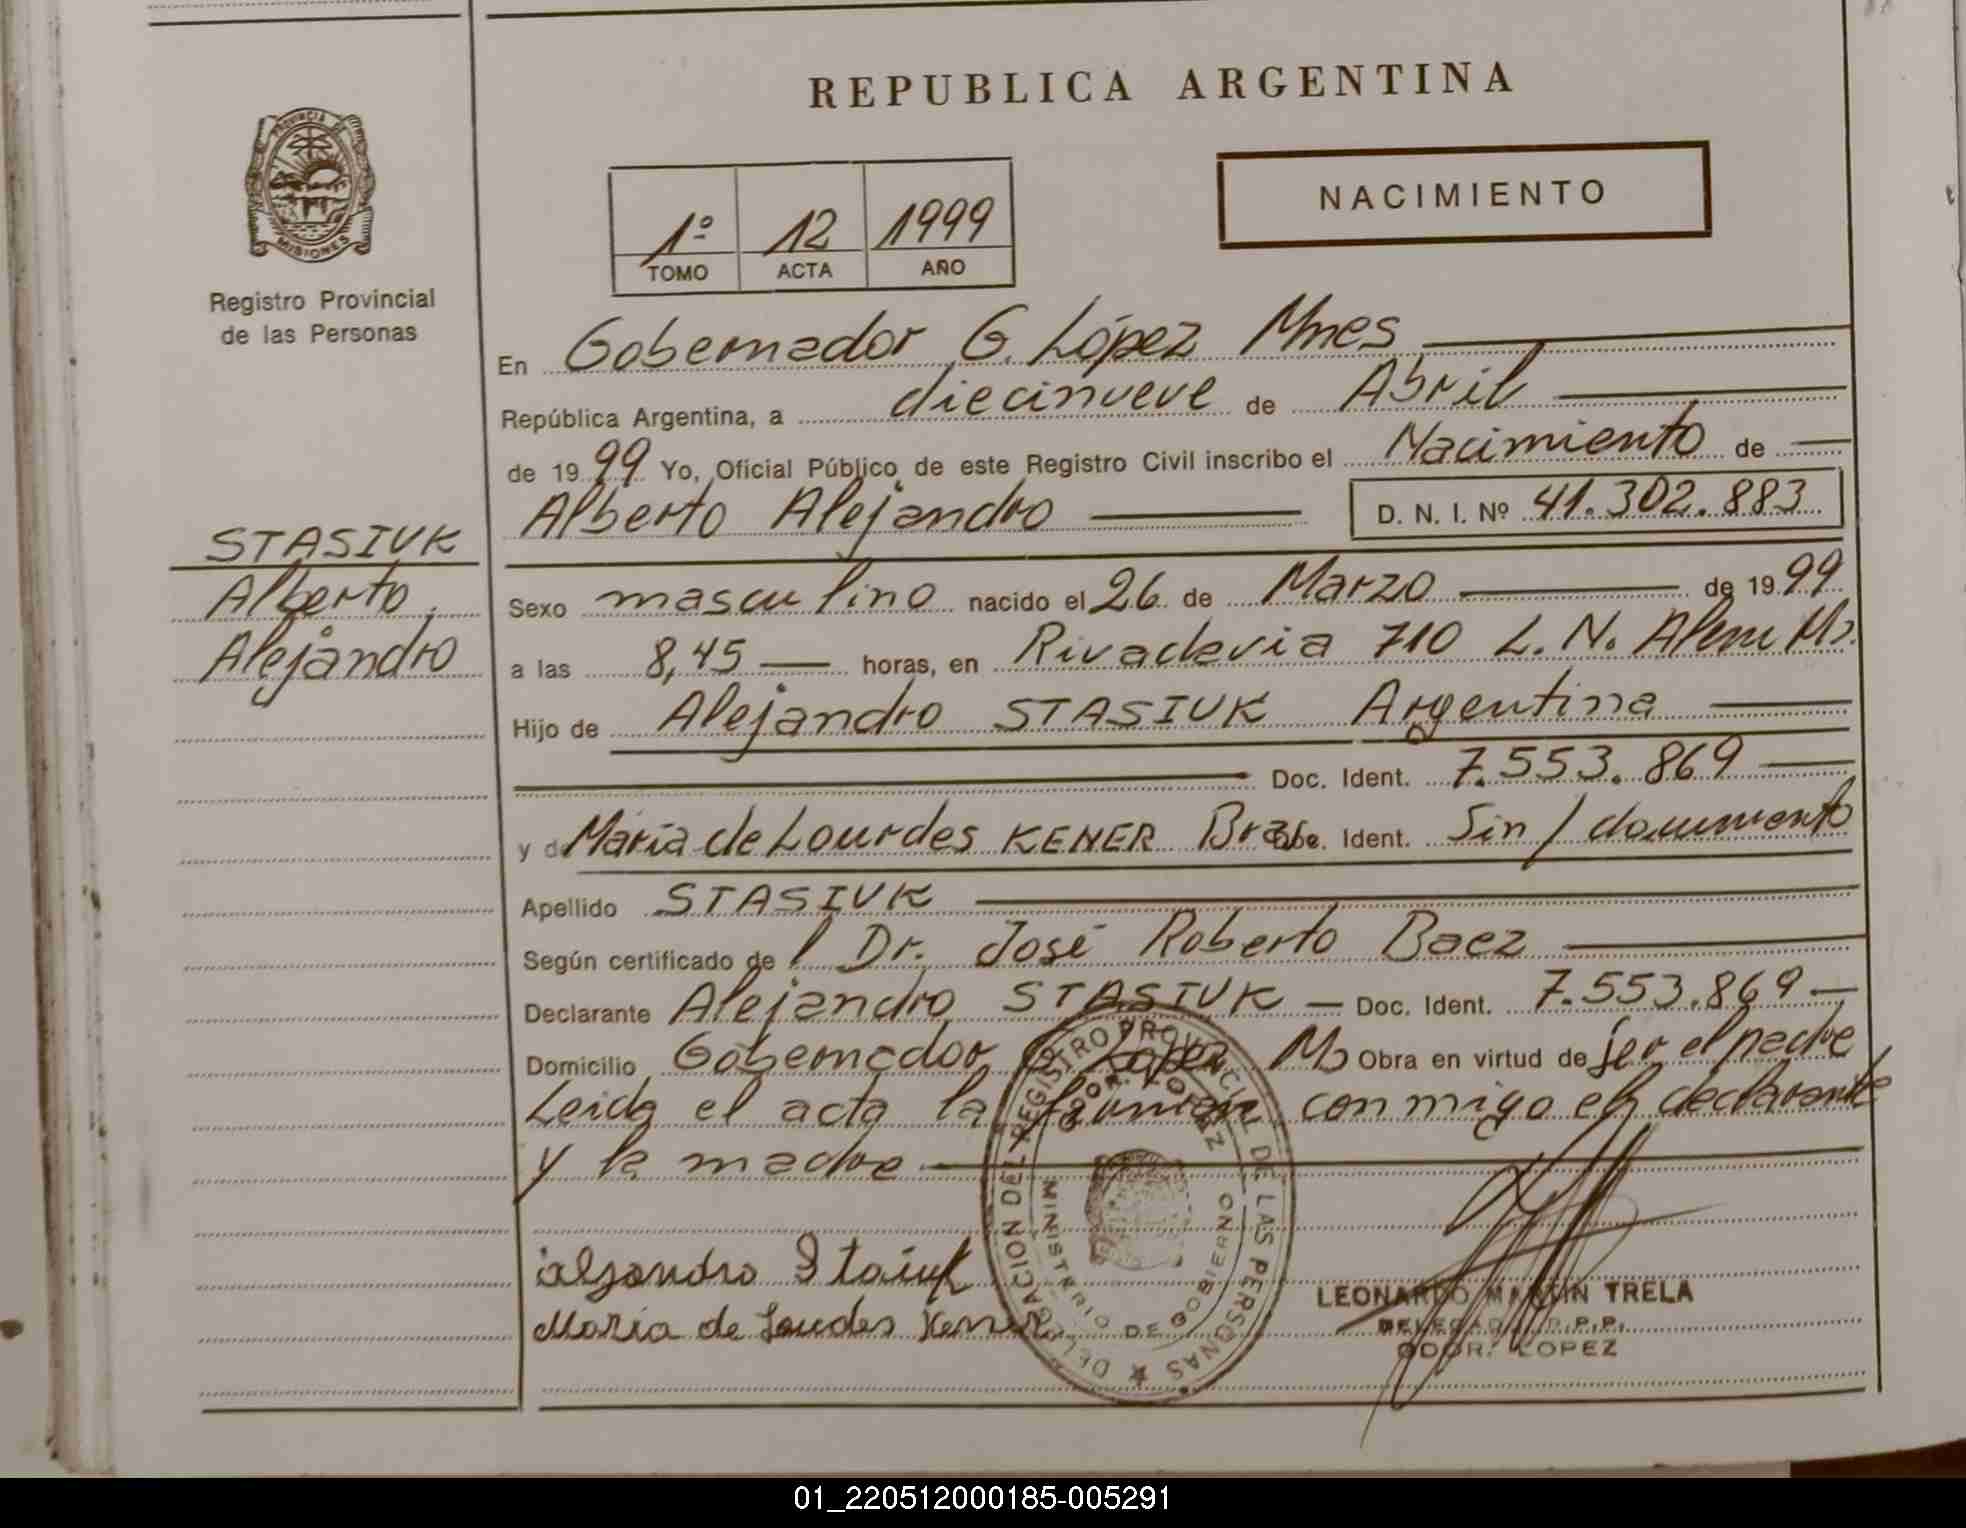 REPUBLICA ARGENTINA
PROVINCIA DE
MISIONES
Registro Provincial
de las Personas
1º 12 1999
TOMO ACTA AÑO
NACIMIENTO
En Gobernador G. López Mnes
República Argentina, a diecinueve de Abril
de 1999 Yo, Oficial Público de este Registro Civil inscribo el Nacimiento de
Alberto Alejandro D. N. I. Nº 41.302.883
STASIUK
Alberto
Alejandro
Sexo masculino nacido el 26 de Marzo de 1999
a las 8,45 horas, en Rivadavia 710 L. N. Alem Ms.
Hijo de Alejandro STASIUK Argentina
Doc. Ident. 7.553.869
y de María de Lourdes KENER Bras. Doc. Ident. Sin/documento
Apellido STASIUK
Según certificado del Dr. José Roberto Baez
Declarante Alejandro STASIUK Doc. Ident. 7.553.869
Domicilio Gobernador G. López Ms Obra en virtud de ser el padre
Leida el acta la firman conmigo el declarante
y la madre
DELEGACION DEL REGISTRO PROVINCIAL DE LAS PERSONAS
GDOR. LOPEZ
MINISTERIO DE GOBIERNO
alejandro Stasiuk
Maria de Lourdes Kener
LEONARDO MARTIN TRELA
DELEGADO R.P.P.
GDOR. LOPEZ
01_220512000185-005291